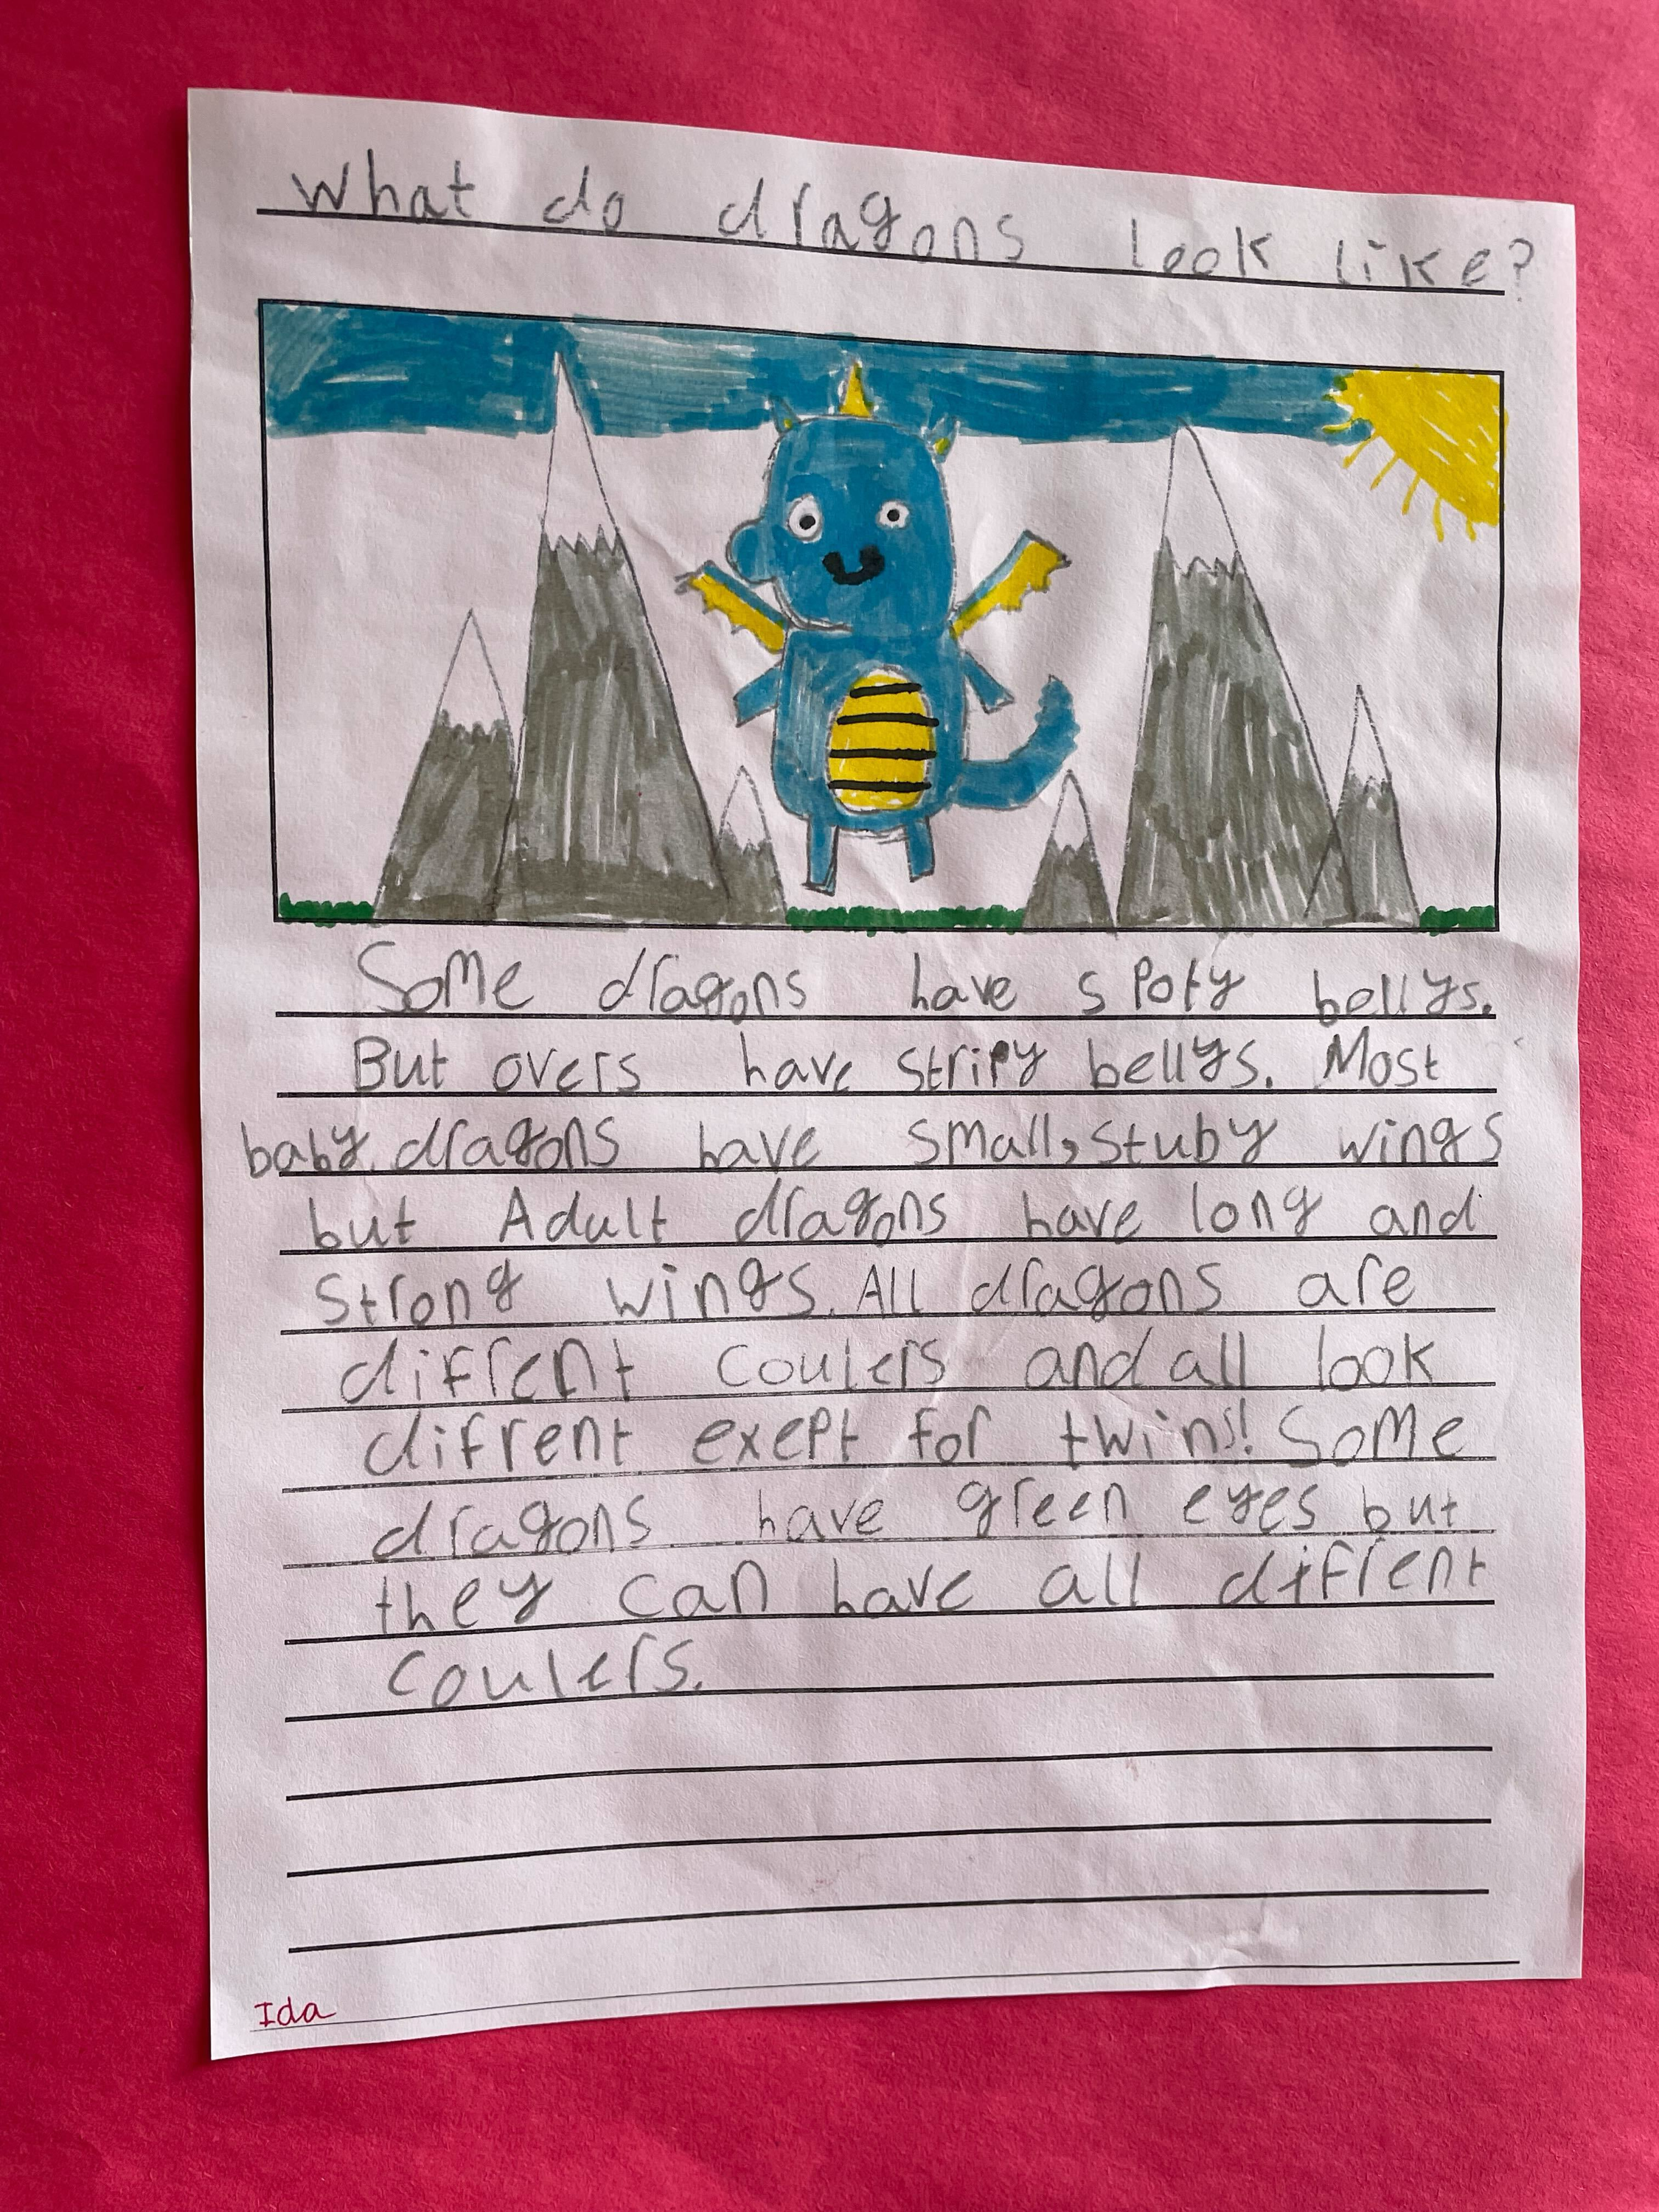 What do dragons look like?
Some dragons have spoty bellys.
But overs have stripy bellys. Most
baby dragons have small, stuby wings
but Adult dragons have long and
strong wings. All dragons are
difrent coulers and all look
difrent exept for twins! Some
dragons have green eyes but
they can have all difrent
coulers.
Ida